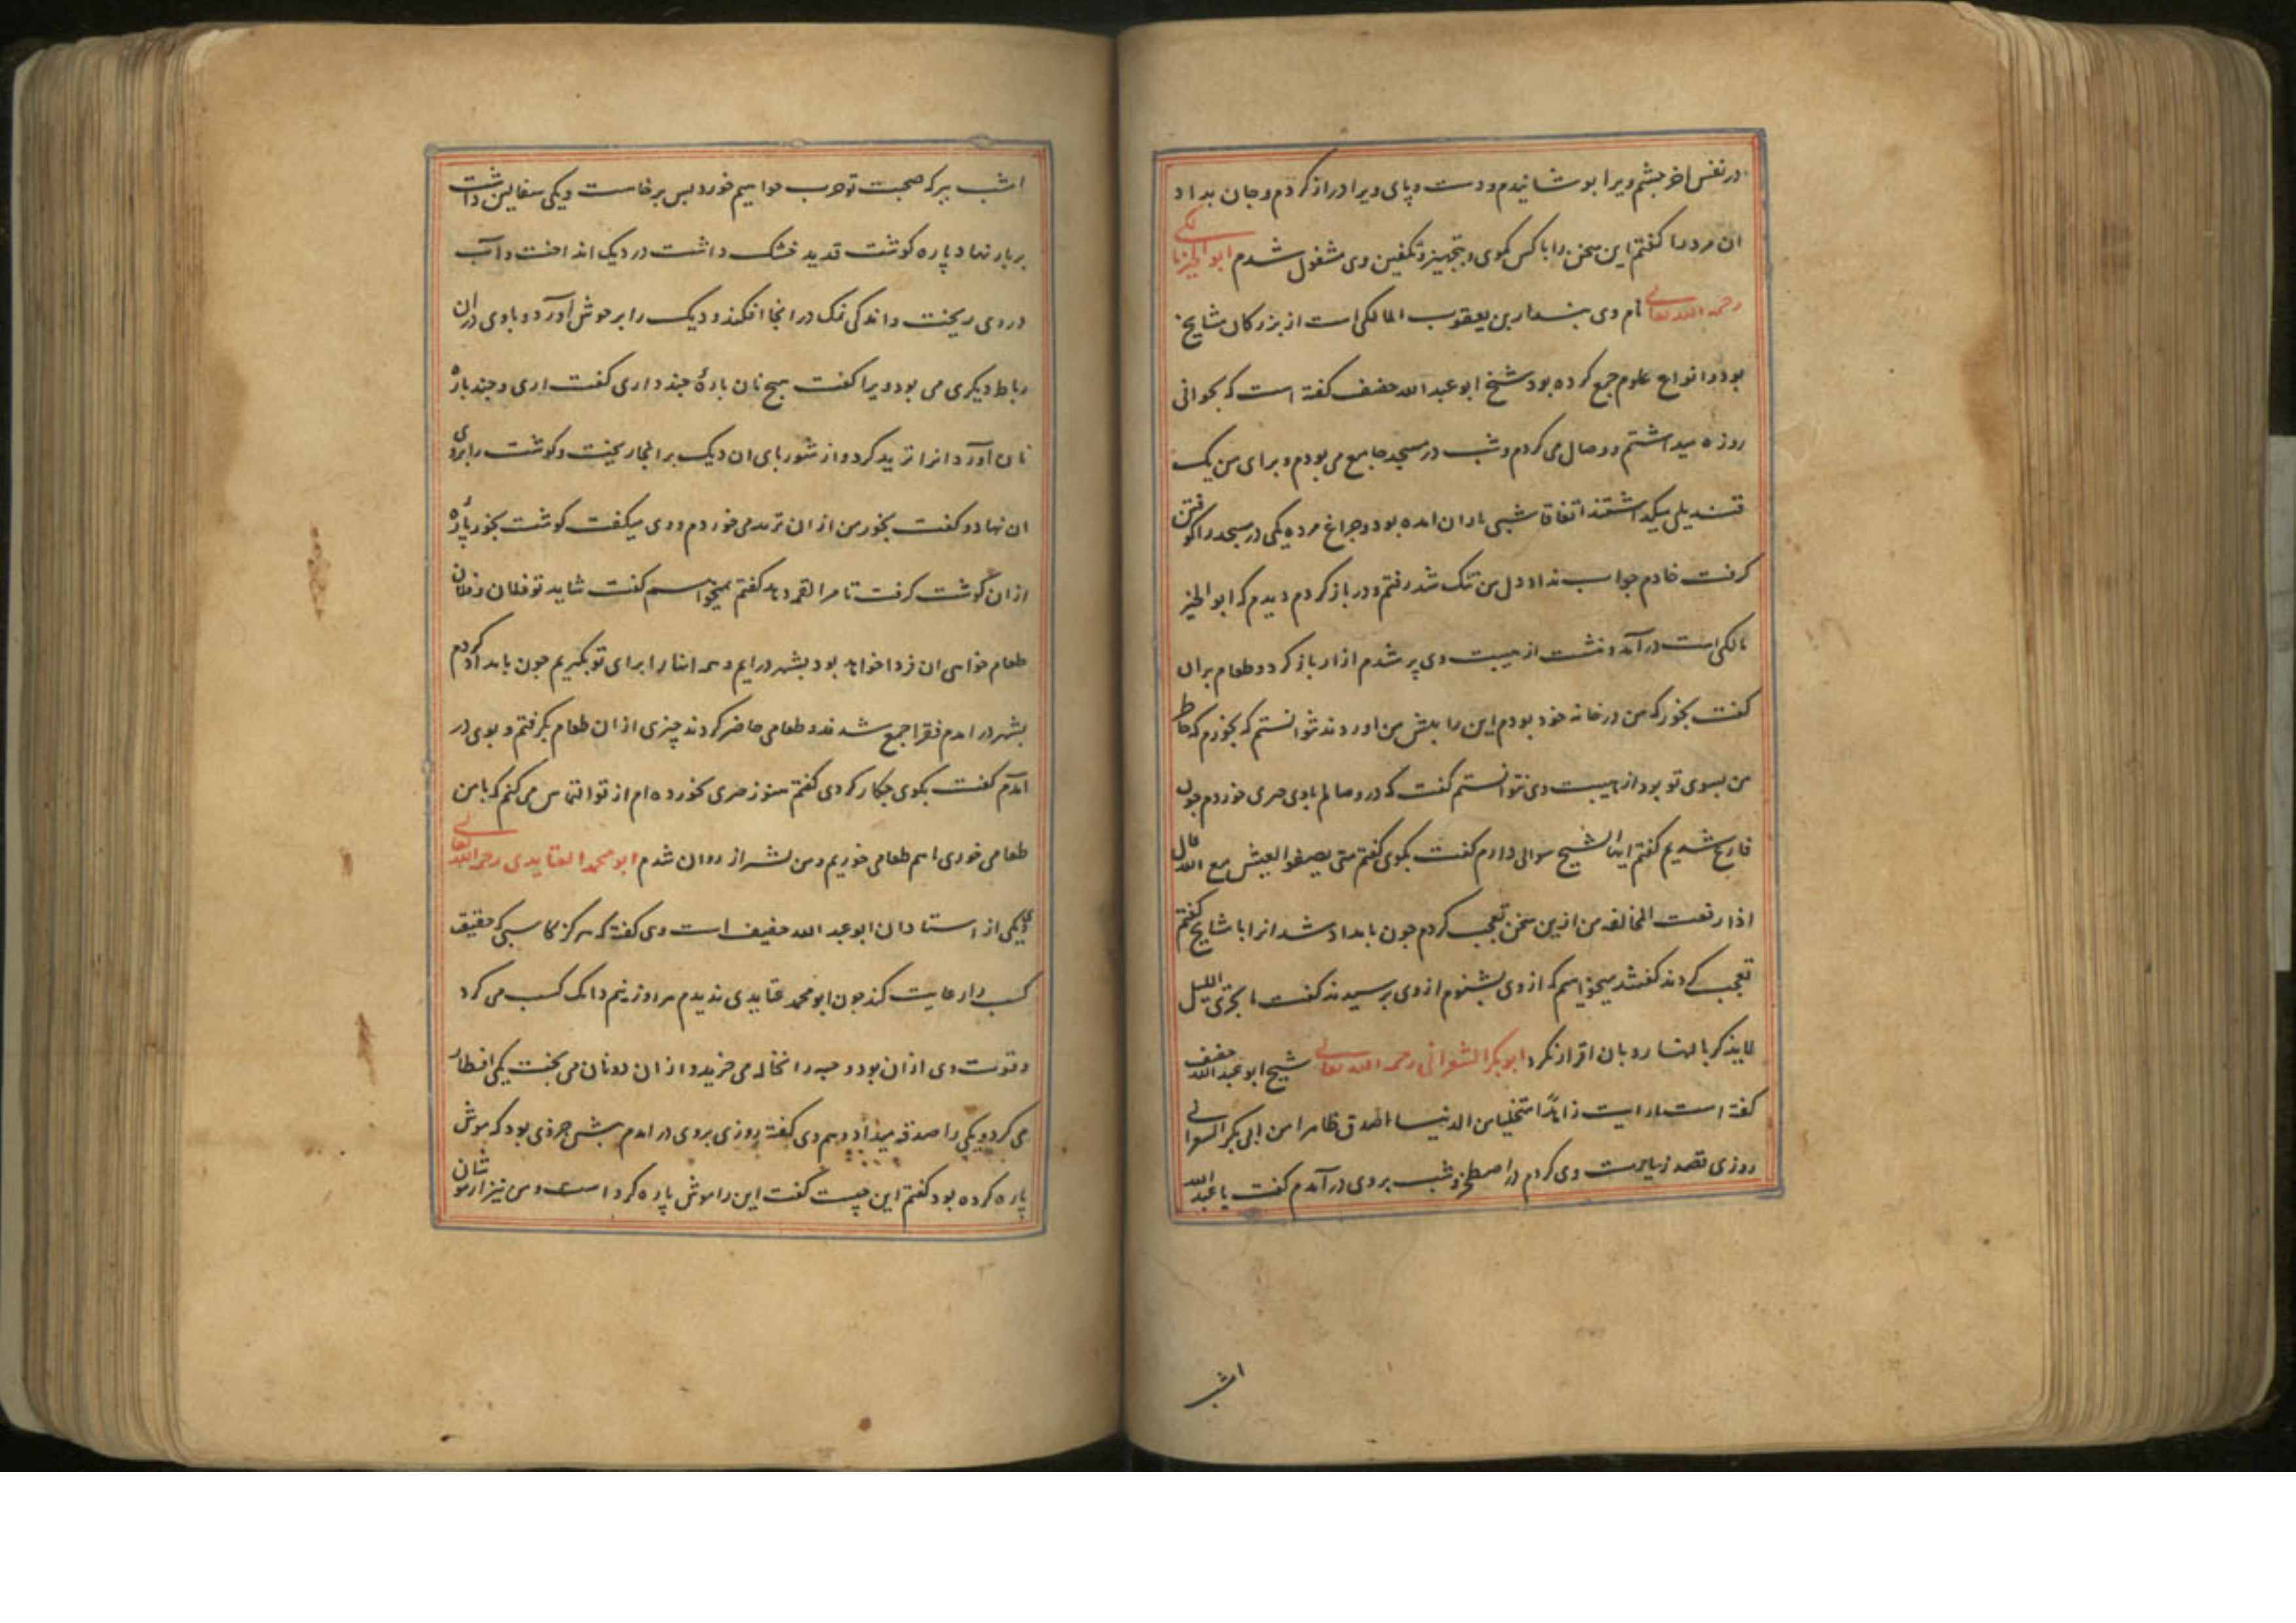 در نفس اخر چشم ویرا بوشانیدم و دست و پای ویرا دراز کردم و جان بداد
ان مرد را کفتم این سخن را با کس مکوی و بتجهیز و تکفین وی مشغول شدم ابوالخیر مالکی
رحمه الله تعالی نام وی بندار بن یعقوب المالکی است از بزرکان مشایخ
بود و انواع علوم جمع کرده بود شیخ ابو عبد الله خفیف کفته است که بجوانی
روزه میداشتم و وصال می کردم و شب در مسجد جامع می بودم و برای من یک
قندیلی میکذاشتند اتفاقا شبی باران امده بود و چراغ مرده یکی در مسجد را کوفتن
کرفت خادم جواب نداد دل من تنک شد رفتم و در باز کردم دیدم که ابو الخیر
مالکی است در آمد و نشست از هیبت وی پر شدم ازار باز کرد و طعام بران
کفت بخور که من در خانه خود بودم این را بیش من اوردند نتوانستم که بخورم که خاطر
من بسوی تو بود از هیبت وی نتوانستم کفت که در وصالم با وی چیزی خوردم چون
فارغ شدیم کفتم ایها الشیخ سوالی دارم کفت بکوی کفتم متی یصفوا العیش مع الله قال
اذا رفعت المخالفه من ازین سخن تعجب کردم چون بامداد شد انرا با مشایخ کفتم
تعجب کردند کفتند میخواهیم که از وی بشنویم از وی پرسیدند کفت ما یجری باللیل
لا یذکر بالنهار و بان اقرار نکرد ابو بکر الشعرانی رحمه الله تعالی شیخ ابو عبد الله خفیف
کفته است ما رایت زاهدا متخلیا من الدنیا اصدق ظاهرا من ابی بکر الشعرانی
روزی قصد زیارت وی کردم در اصطخر و شب بر وی در آمدم کفت یا عبد الله
امشب
امشب ببرکه صحبت تو چرب خواهیم خورد بس برخاست و دیکی سفالین داشت
بر بار نهاد پاره کوشت قدید خشک داشت در دیک انداخت و آب
در وی ریخت و اندکی نمک در انجا افکند و دیک را بر جوش آورد و با وی دران
رباط دیکری می بود ویرا کفت هیچ نان بارهٔ چند داری کفت اری و چند باره
نان آورد انرا ترید کرد و از شوربای ان دیک بر انجا ریخت و کوشت را بروی
ان نهاد و کفت بخور من از ان ترید می خوردم و وی میکفت کوشت بخور پارهٔ
ازان کوشت کرفت تا مرا لقمه دهد کفتم نمیخواهم کفت شاید تو فلان و فلان
طعام خواهی ان فردا خواهد بود بشهر درایم و همه انها را برای تو بکیریم چون بامداد کردم
بشهر در امدم فقرا جمع شدند و طعامی حاضر کردند چیزی از ان طعام بکرفتم و بوی در
آمدم کفت بکوی چکار کردی کفتم هنوز چیزی نخورده ام از تو التماس می کنم که با من
طعامی خوری با هم طعامی خوریم و من بشیراز روان شدم ابو محمد العتایدی رحمه الله تعالی
وی یکی از استادان ابو عبد الله خفیف است وی کفته که هرکز کاسبی که حقیقت
کسب را رعایت کند چون ابو محمد عتایدی ندیدم هر روز نیم دانک کسب می کرد
و قوت وی از ان بود دو حبه را نخاله می خرید و از ان دو نان می بخت بیکی افطار
می کرد و یکی را صدقه میداد و هم وی کفته روزی بروی در امدم بیش خرقه‌ی بود که موش
پاره کرده بود کفتم این چیست کفت این را موش پاره کرده است و من نیز از موشان